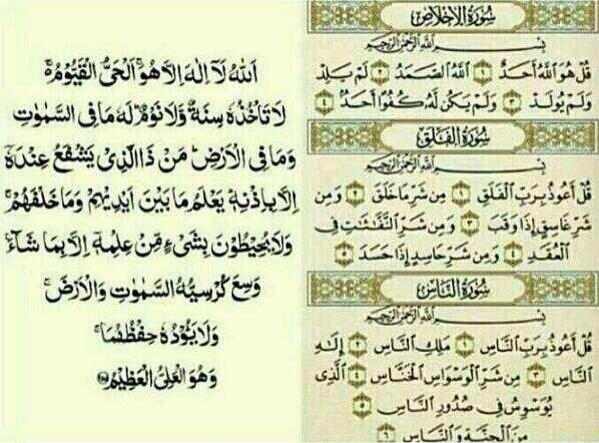 اَللّٰهُ لَآ اِلٰهَ اِلَّا هُوَ ۚ اَلْحَيُّ الْقَيُّوْمُ ۚ
لَا تَأْخُذُهٗ سِنَةٌ وَّلَا نَوْمٌ ؕ لَهٗ مَا فِي السَّمٰوٰتِ
وَمَا فِي الْاَرْضِ ؕ مَنْ ذَا الَّذِيْ يَشْفَعُ عِنْدَهٗٓ
اِلَّا بِاِذْنِهٖ ؕ يَعْلَمُ مَا بَيْنَ اَيْدِيْهِمْ وَمَا خَلْفَهُمْ ۚ
وَلَا يُحِيْطُوْنَ بِشَيْءٍ مِّنْ عِلْمِهٖٓ اِلَّا بِمَا شَآءَ ۚ
وَسِعَ كُرْسِيُّهُ السَّمٰوٰتِ وَالْاَرْضَ ۚ
وَلَا يَـُٔوْدُهٗ حِفْظُهُمَا ۚ
وَهُوَ الْعَلِيُّ الْعَظِيْمُ
سُورَةُ الإِخْلَاصِ
بِسْمِ اللَّهِ الرَّحْمَٰنِ الرَّحِيمِ
قُلْ هُوَ ٱللَّهُ أَحَدٌ ١ ٱللَّهُ ٱلصَّمَدُ ٢ لَمْ يَلِدْ
وَلَمْ يُولَدْ ٣ وَلَمْ يَكُن لَّهُۥ كُفُوًا أَحَدٌۢ ٤
سُورَةُ الْفَلَقِ
بِسْمِ اللَّهِ الرَّحْمَٰنِ الرَّحِيمِ
قُلْ أَعُوذُ بِرَبِّ ٱلْفَلَقِ ١ مِن شَرِّ مَا خَلَقَ ٢ وَمِن
شَرِّ غَاسِقٍ إِذَا وَقَبَ ٣ وَمِن شَرِّ ٱلنَّفَّـٰثَـٰتِ فِى
ٱلْعُقَدِ ٤ وَمِن شَرِّ حَاسِدٍ إِذَا حَسَدَ ٥
سُورَةُ النَّاسِ
بِسْمِ اللَّهِ الرَّحْمَٰنِ الرَّحِيمِ
قُلْ أَعُوذُ بِرَبِّ ٱلنَّاسِ ١ مَلِكِ ٱلنَّاسِ ٢ إِلَـٰهِ
ٱلنَّاسِ ٣ مِن شَرِّ ٱلْوَسْوَاسِ ٱلْخَنَّاسِ ٤ ٱلَّذِى
يُوَسْوِسُ فِى صُدُورِ ٱلنَّاسِ ٥
مِنَ ٱلْجِنَّةِ وَٱلنَّاسِ ٦